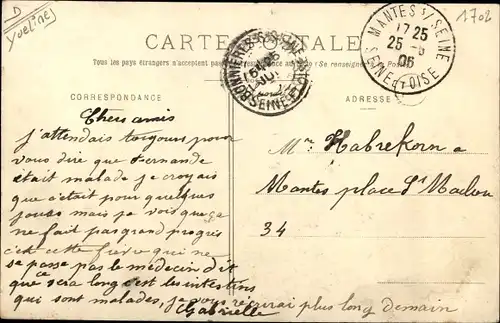 D
Yveline
1702
CARTE POSTALE
Tous les pays étrangers n'acceptent pas la correspondance au (Se renseigner
CORRESPONDANCE
ADRESSE
BONNIERES S. SEINE
SEINE ET OISE
MANTES S/ SEINE
17 25
25 -6
06
SEINE ET OISE
Chers amis
j'attendais toujours pour
vous dire que Fernande
était malade je croyais
que c'était pour quelques
jours mais je vois que ça
ne fait pas grand progrès
c'est cette fièvre qui ne
se passe pas le médecin dit
que ce sera long c'est les intestins
qui sont malades, je vous écrirai plus long demain
Gabrielle
Mr Habrekorn a
Mantes place St Maclou
34